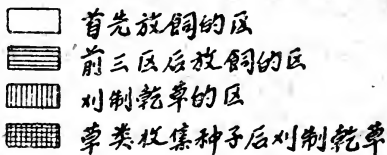 首先放饲的区
前三区后放饲的区
刈制乾草的区
草类收集种子后刈制乾草